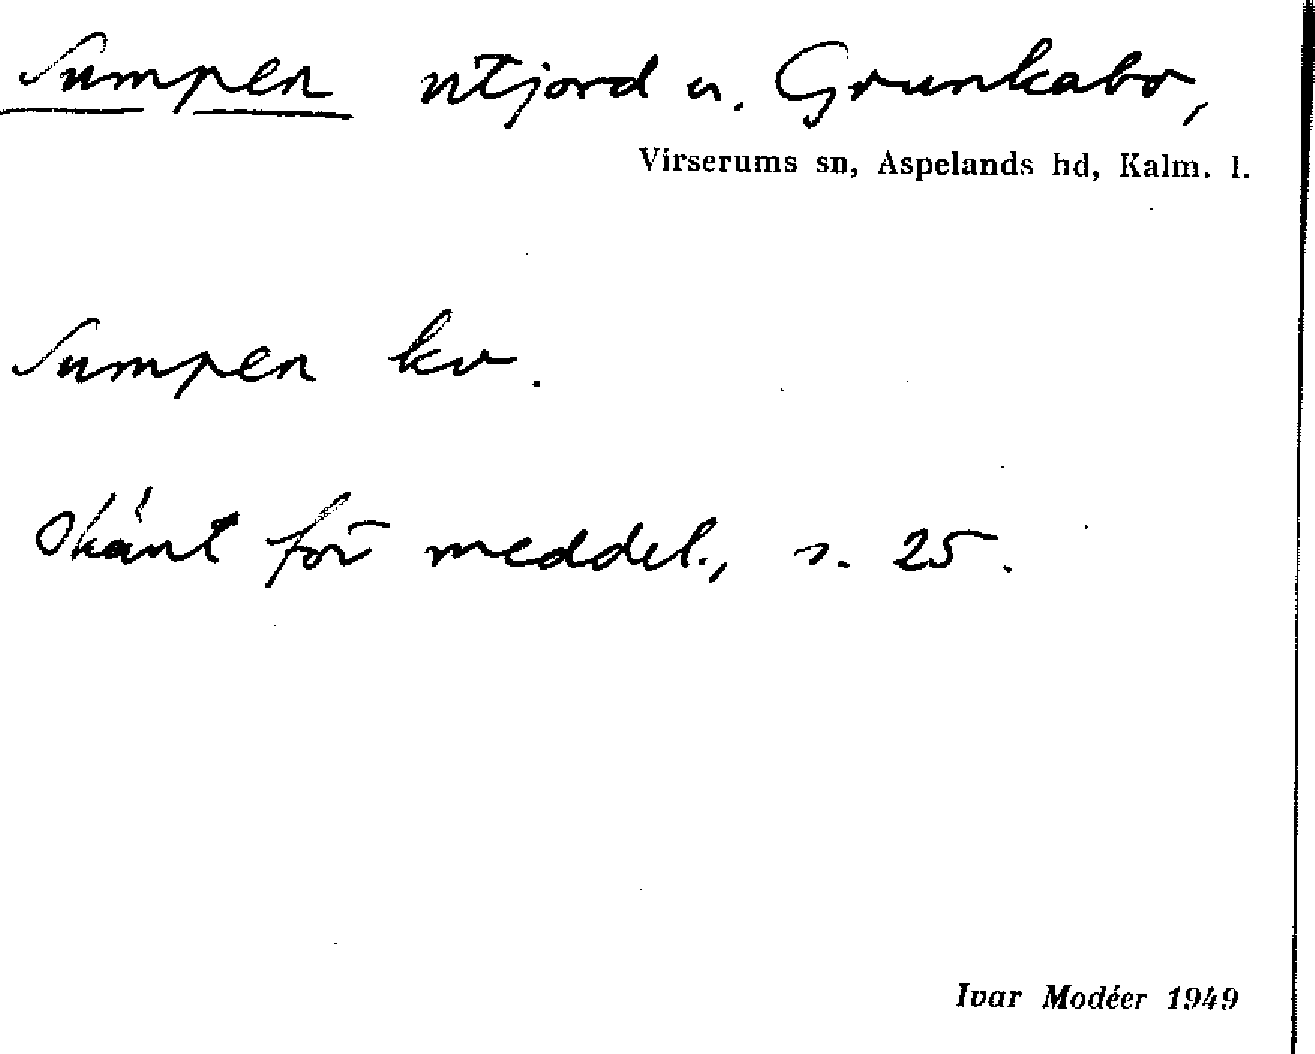 Sumpen utjord u. Grunkabo,
Virserums sn, Aspelands hd, Kalm. l.
Sumpen kv.
Okänt för meddel., s. 25.
Ivar Modéer 1949